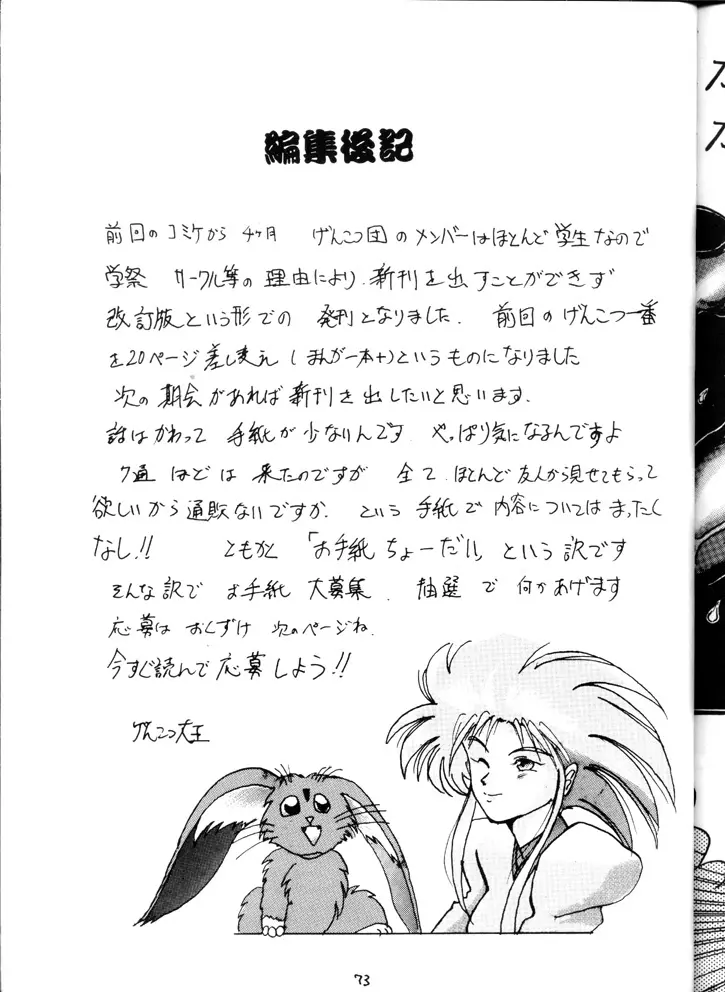 編集後記
前回のコミケから 4ヶ月 げんこつ団のメンバーはほとんど学生なので
学祭 サークル等の理由により、新刊を出すことができず
改訂版という形での 発刊となりました. 前回のげんこつ一番
を20ページ差し変え(まんが一本+)というものになりました
次の期会があれば新刊を出したいと思います.
話はかわって 手紙が少ないんです やっぱり気になるんですよ
7通 ほどは 来たのですが 全て、ほとんど友人から見せてもらって
欲しいから通販ないですか. という 手紙で 内容については まったく
なし!! ともかく 「お手紙 ちょーだい」 という訳です
そんな訳で お手紙 大募集. 抽選 で 何かあげます
応募は おくずけ 次のページね.
今すぐ読んで 応募しよう!!
げんこつ大王
73